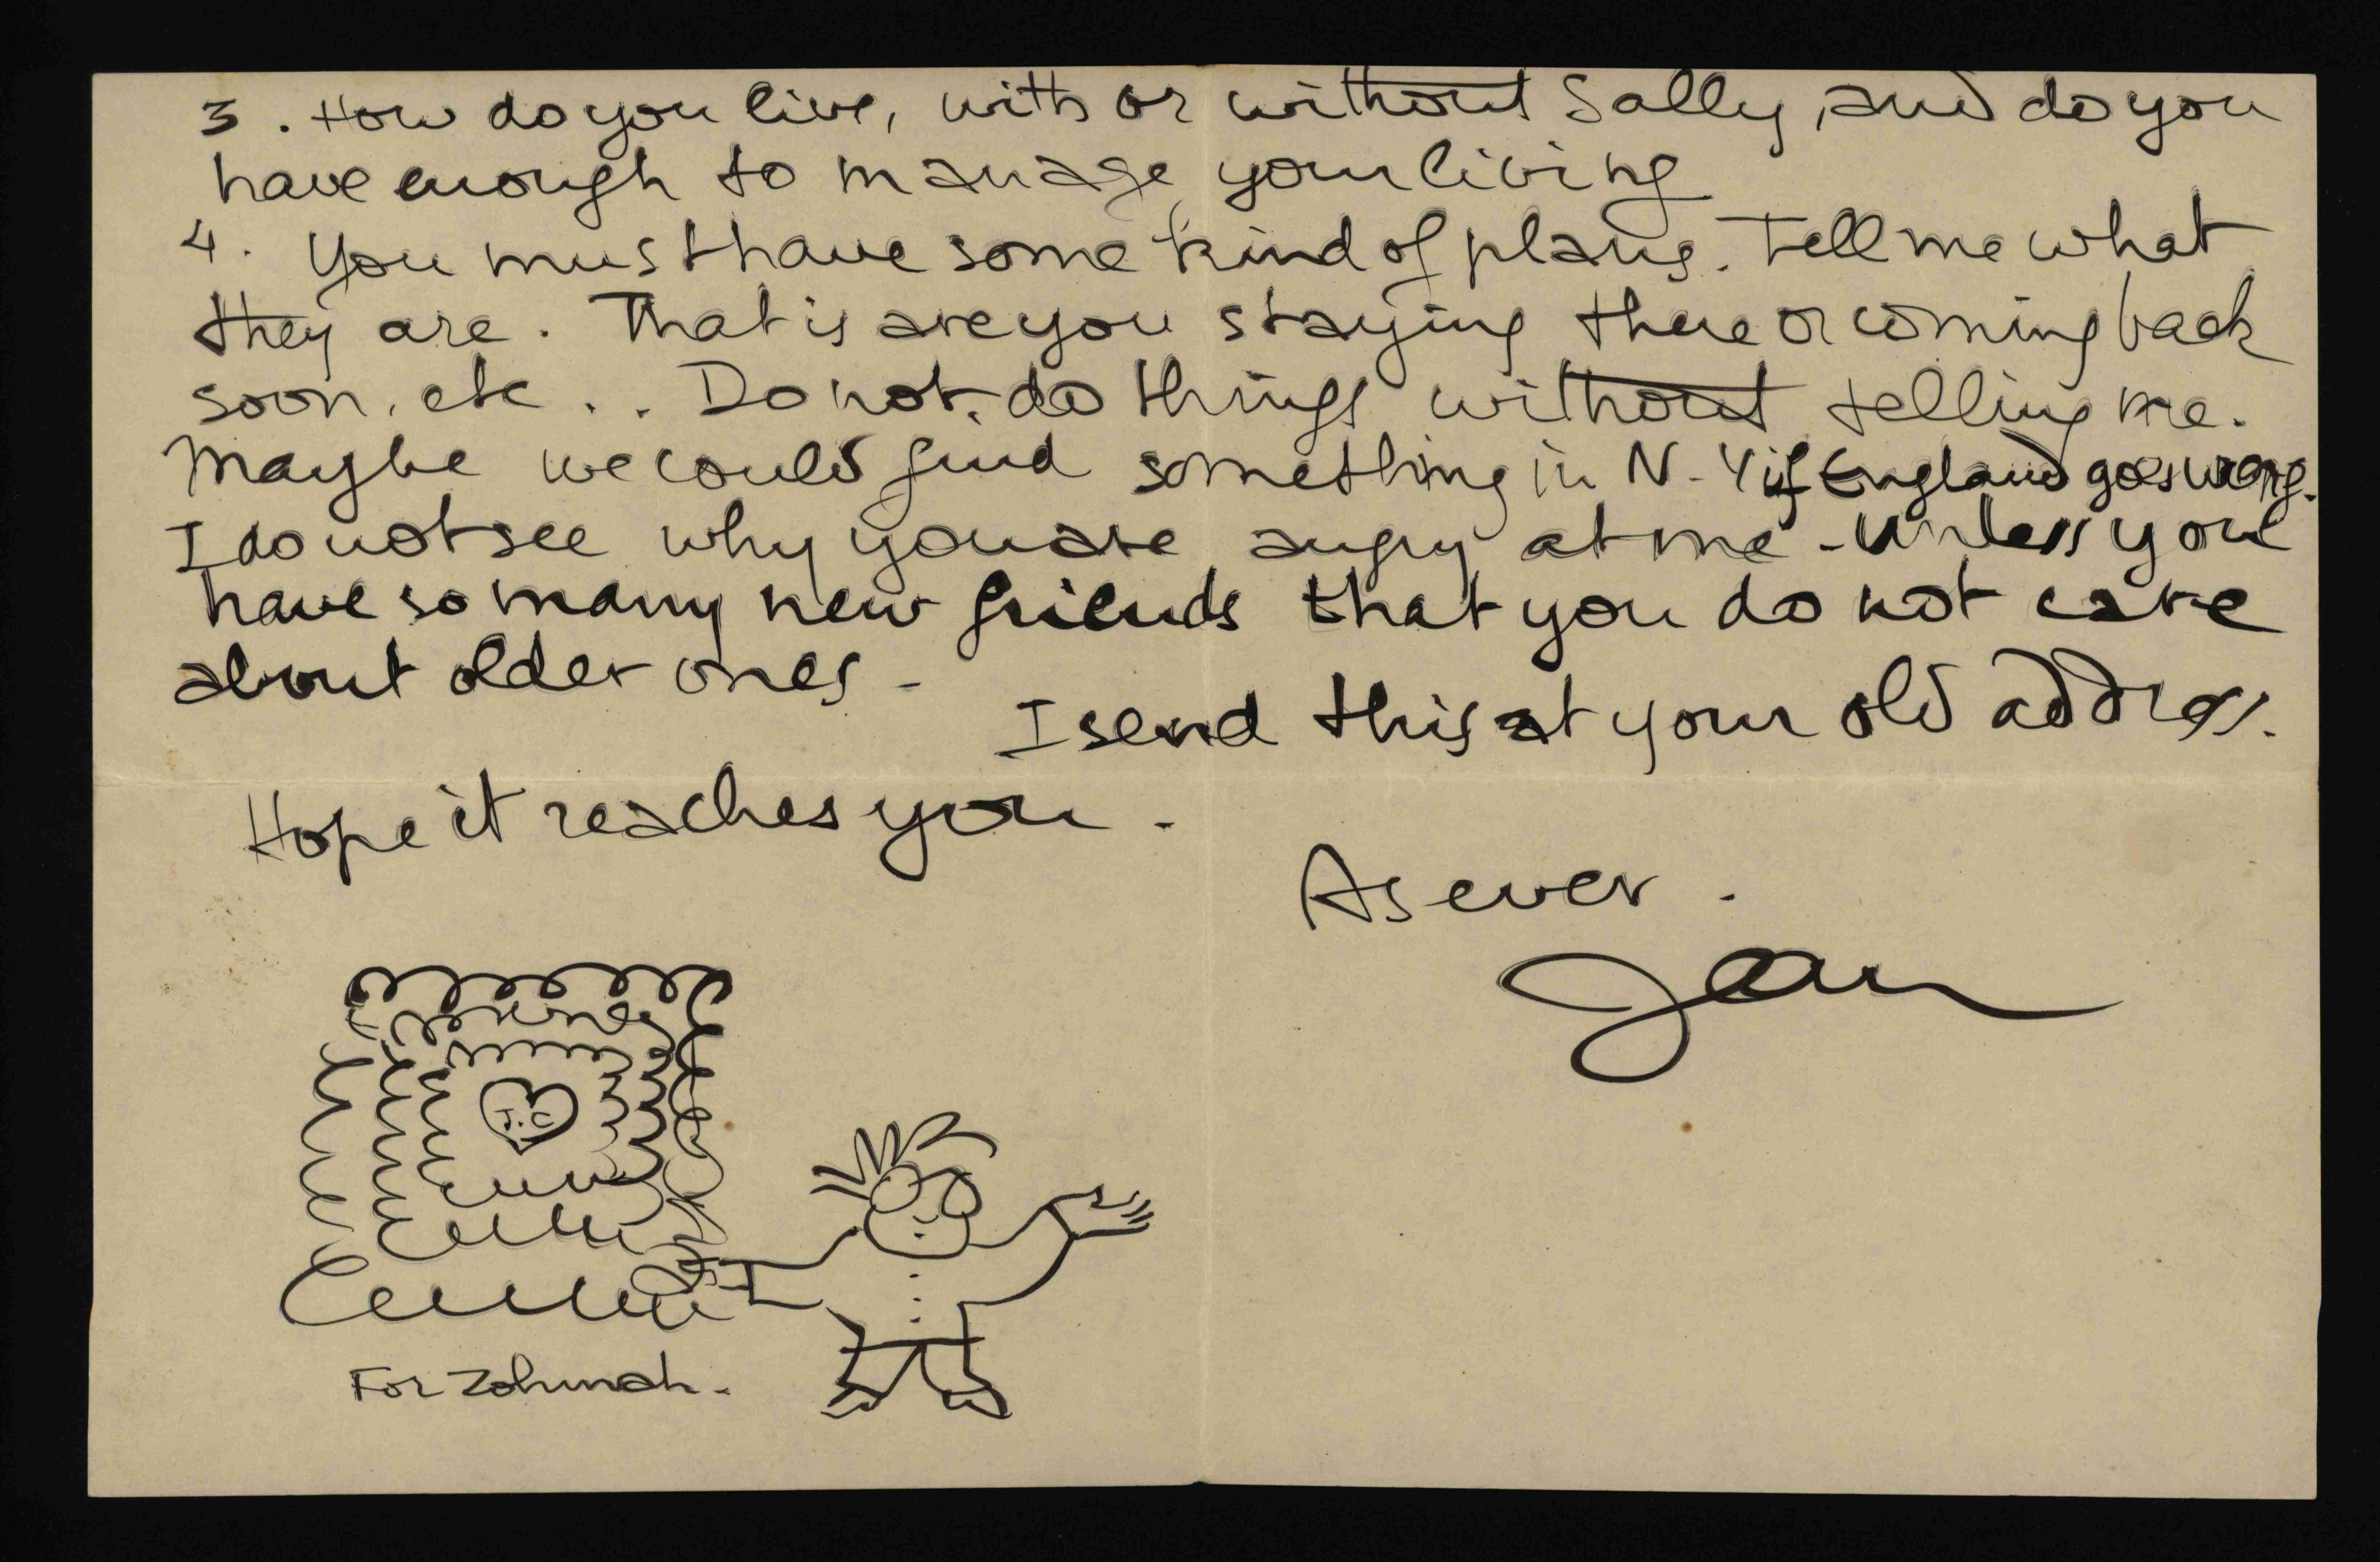 3. How do you live, with or without Sally, and do you
have enough to manage your living
4. You must have some kind of plans. Tell me what
they are. That is are you staying there or coming back
soon, etc... Do not do things without telling me.
Maybe we could find something in N.Y if England goes wrong.
I do not see why you are angry at me - Unless you
have so many new friends that you do not care
about older ones -
I send this at your old address.
Hope it reaches you.
As ever.
Jean
J.C
For Zohmah.